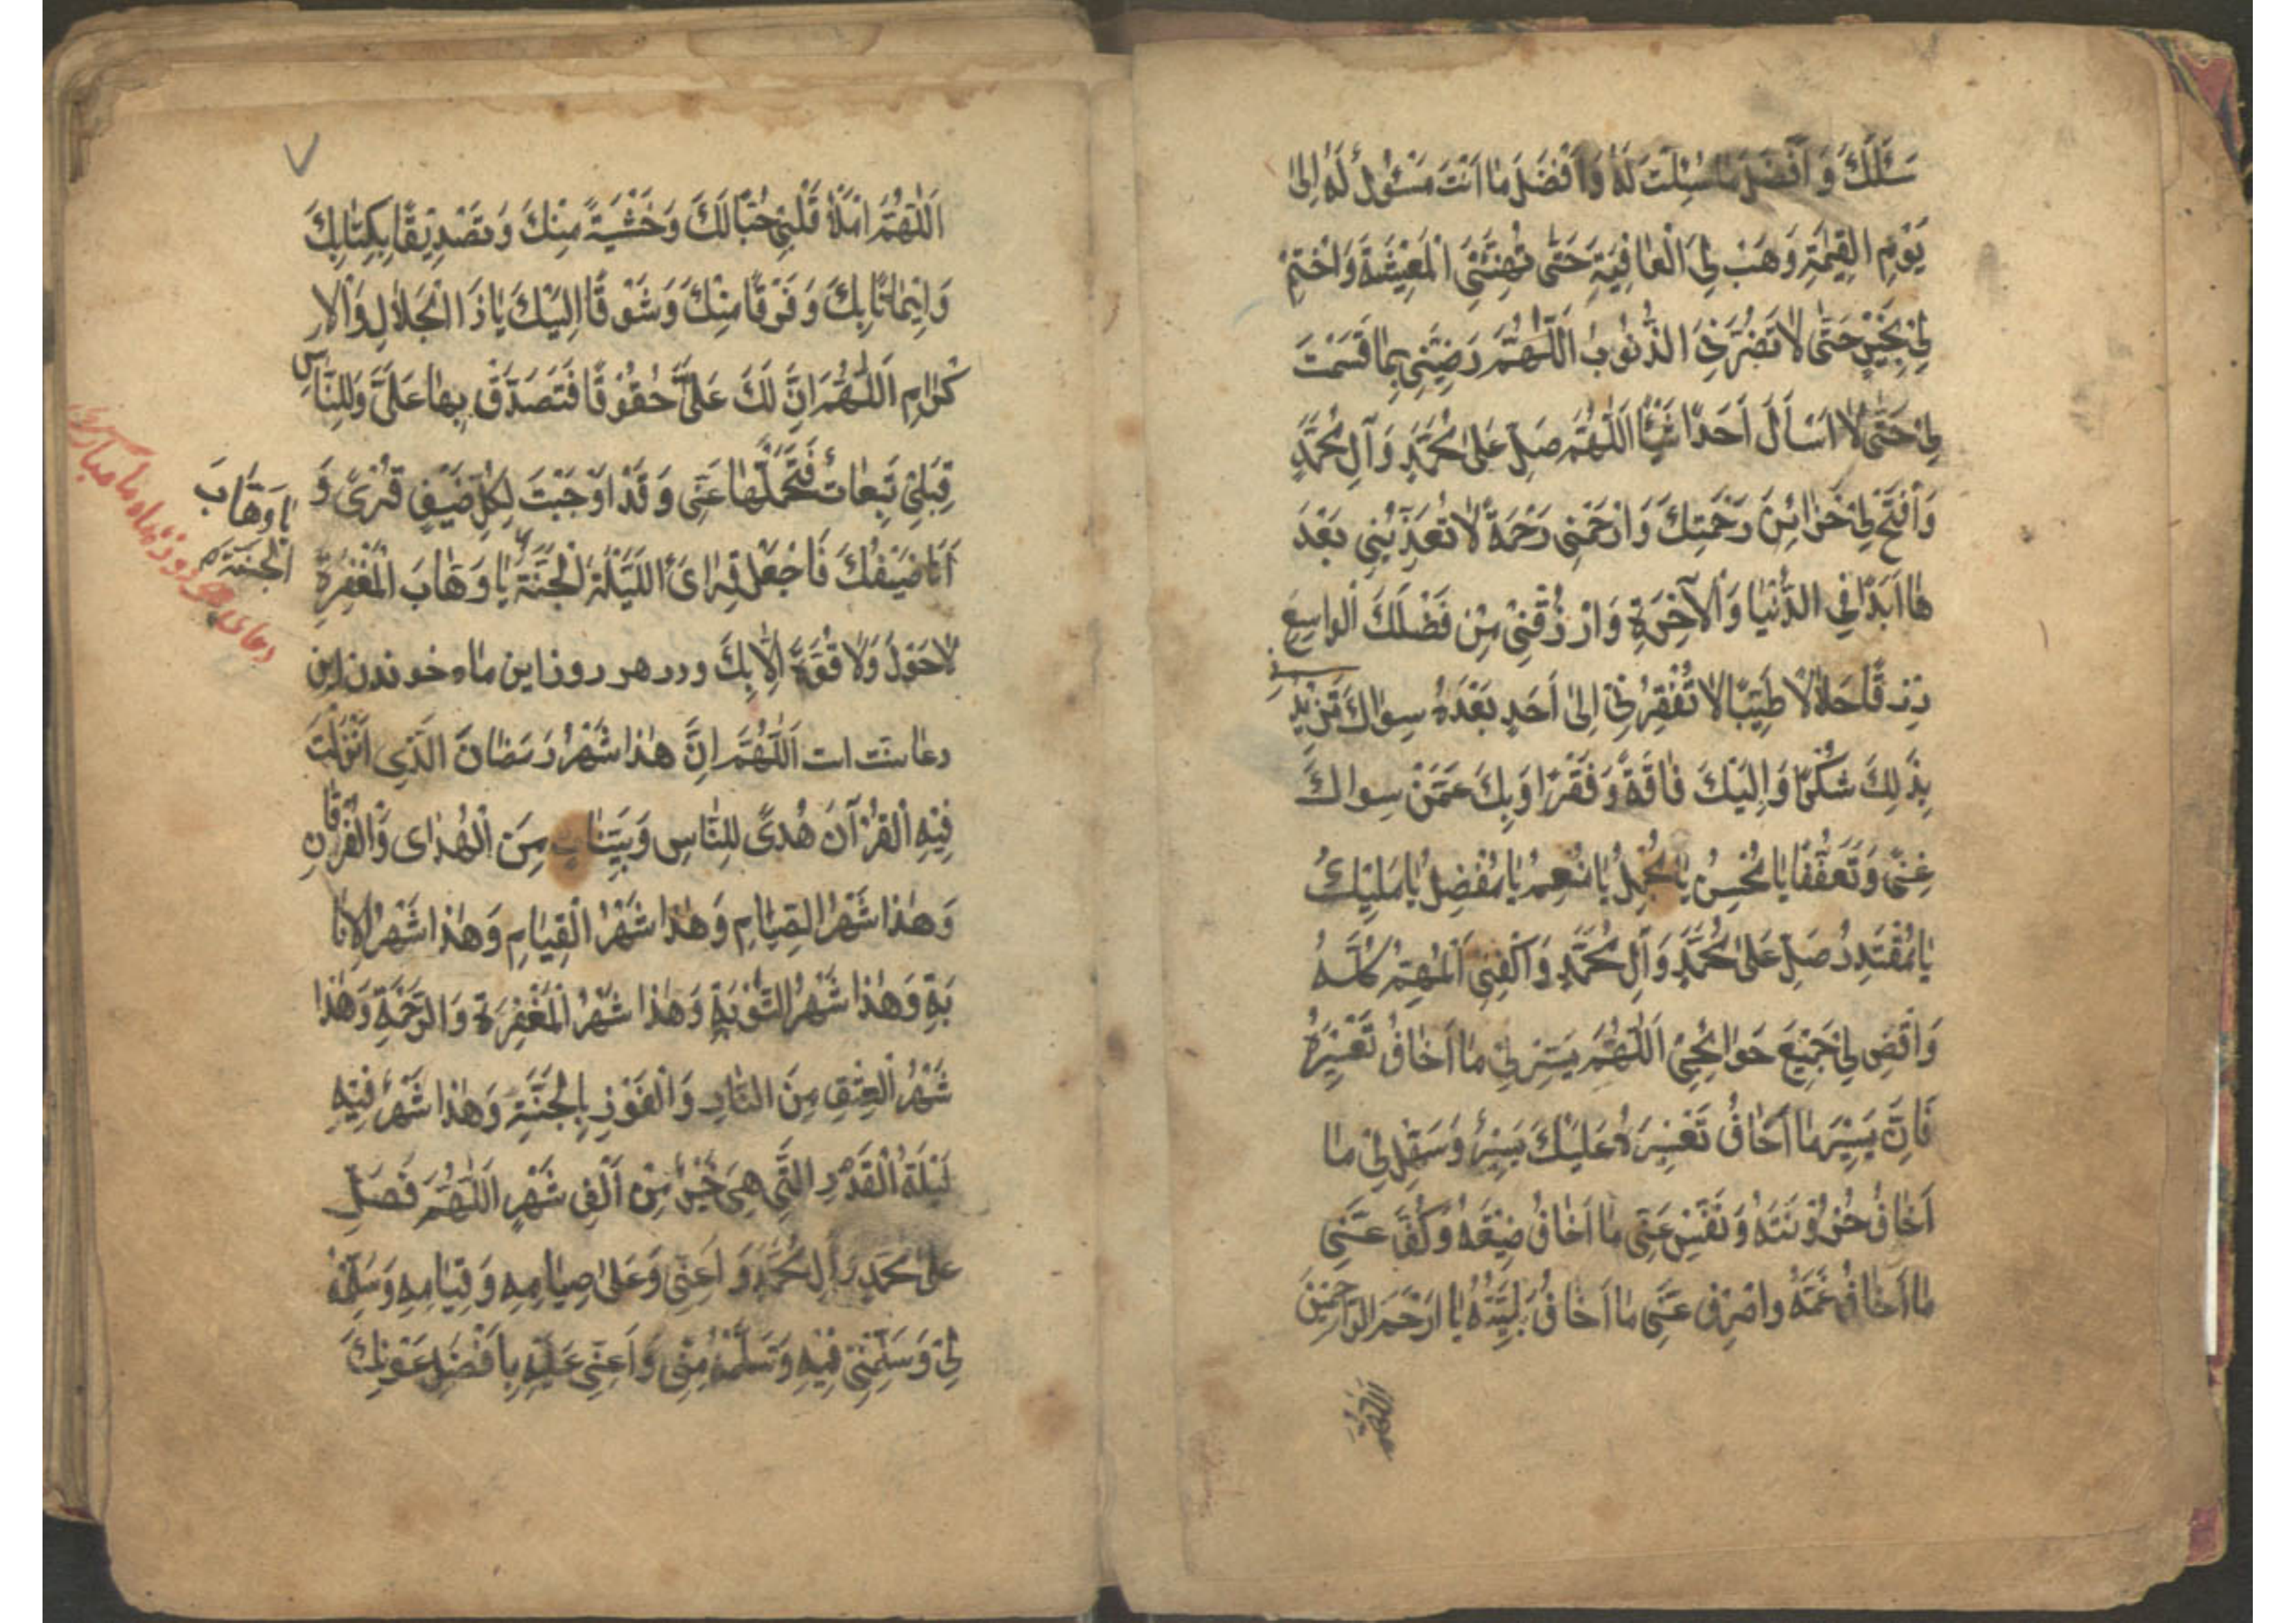 سَئَلَكَ وَ اَفْضَلَ مٰا سُئِلْتَ لَهُ وَ اَفْضَلَ مٰا اَنْتَ مَسْئُولٌ لَهُ اِلىٰ
يَوْمِ الْقِيٰمَةِ وَ هَبْ لِىَ الْعٰافِيَةِ حَتّٰى تُهَنِّئَنِىَ الْمَعِيْشَةَ وَ اخْتِمْ
لِىْ بِخَيْرٍ حَتّٰى لاٰ تَضُرَّنِىَ الذُّنُوْبُ اَللّٰهُمَّ رَضِّنِى بِمٰا قَسَمْتَ
لِىْ حَتّٰى لاٰ اَسْاَلَ اَحَدًا شَيْئًا اَللّٰهُمَّ صَلِّ عَلىٰ مُحَمَّدٍ وَ آلِ مُحَمَّدٍ
وَ اْفْتَحْ لِىْ خَزٰائِنَ رَحْمَتِكَ وَ ارْحَمْنِى رَحْمَةً لاٰ تُعَذِّبُنِى بَعْدَ
هٰا اَبَدًا فِى الدُّنْيٰا وَ اْلآخِرَةِ وَ ارْزُقْنِىْ مِنْ فَضْلِكَ الْوٰاسِعِ
رِزْقًا حَلاٰلاً طَيِّبًا لاٰ تُفْقِرُنِىْ اِلىٰ اَحَدٍ بَعْدَهُ سِوٰاكَ تَزِيْدُنِى
بِذٰلِكَ شُكْرًا وَ اِلَيْكَ فٰاقَةً وَ فَقْرًا وَ بِكَ عَمَّنْ سِوٰاكَ
غِنًى وَ تَعَفُّفًا يٰا مُحْسِنُ يٰا مُجْمِلُ يٰا مُنْعِمُ يٰا مُفْضِلُ يٰا مَلِيْكُ
يٰا مُقْتَدِرُ صَلِّ عَلىٰ مُحَمَّدٍ وَ آلِ مُحَمَّدٍ وَ اكْفِنِى الْمُهِمَّ كُلَّهُ
وَ اقْضِ لِىْ جَمِيْعَ حَوٰائِجِىْ اَللّٰهُمَّ يَسِّرْ لِىْ مٰا اَخٰافُ تَعْسِيْرَهُ
فَاِنَّ يَسِيْرَ مٰا اَخٰافُ تَعْسِيْرَهُ عَلَيْكَ يَسِيْرٌ وَ سَهِّلْ لِىْ مٰا
اَخٰافُ حُزُوْنَتَهُ وَ نَفِّسْ عَنِّى مٰا اَخٰافُ ضِيْقَهُ وَ كُفَّ عَنِّى
مٰا اَخٰافُ غَمَّهُ وَ اصْرِفْ عَنِّى مٰا اَخٰافُ بَلِيَّتَهُ يٰا اَرْحَمَ الرّٰاحِمِيْنَ
اَللّٰهُمَّ
٧
اَللّٰهُمَّ امْلَأْ قَلْبِىْ حُبًّا لَكَ وَ خَشْيَةً مِنْكَ وَ تَصْدِيْقًا بِكِتٰابِكَ
وَ اِيْمٰانًا بِكَ وَ فَرَقًا مِنْكَ وَ شَوْقًا اِلَيْكَ يٰا ذَا الْجَلاٰلِ وَ الْاِ
كْرٰامِ اَللّٰهُمَّ اِنَّ لَكَ عَلَىَّ حُقُوْقًا فَتَصَدَّقْ بِهٰا عَلَىَّ وَ لِلنّٰاسِ
قِبَلِىْ تَبِعٰاتٌ فَتَحَمَّلْهٰا عَنِّى وَ قَدْ اَوْجَبْتَ لِكُلِّ ضَيْفٍ قِرًى وَ
اَنَا ضَيْفُكَ فَاجْعَلْ قِرٰاىَ اللَّيْلَةَ الْجَنَّةَ يٰا وَهّٰابَ الْمَغْفِرَةِ
يٰا وَهّٰابَ
الْجَنَّةِ
لاٰ حَوْلَ وَ لاٰ قُوَّةَ اِلاّٰ بِكَ و در هر روز اين ماه خوندن اين
دعا سنت است اَللّٰهُمَّ اِنَّ هٰذٰا شَهْرُ رَمَضٰانَ الَّذِى اَنْزَلْتَ
فِيْهِ الْقُرْآنَ هُدًى لِلنّٰاسِ وَ بَيِّنٰاتٍ مِنَ الْهُدٰاى وَ الْفُرْقٰانِ
وَ هٰذٰا شَهْرُ الصِّيٰامِ وَ هٰذٰا شَهْرُ الْقِيٰامِ وَ هٰذٰا شَهْرُ الْاِنٰا
بَةِ وَ هٰذٰا شَهْرُ التَّوْبَةِ وَ هٰذٰا شَهْرُ الْمَغْفِرَةِ وَ الرَّحْمَةِ وَ هٰذٰا
شَهْرُ الْعِتْقِ مِنَ النّٰارِ وَ الْفَوْزِ بِالْجَنَّةِ وَ هٰذٰا شَهْرٌ فِيْهِ
لَيْلَةُ الْقَدْرِ الَّتِى هِىَ خَيْرٌ مِنْ اَلْفِ شَهْرٍ اَللّٰهُمَّ فَصَلِّ
عَلىٰ مُحَمَّدٍ وَ آلِ مُحَمَّدٍ وَ اَعِنِّى وَ عَلىٰ صِيٰامِهِ وَ قِيٰامِهِ وَ سَلِّمْهُ
لِىْ وَ سَلِّمْنِىْ فِيْهِ وَ تَسَلَّمْهُ مِنِّى وَ اَعِنِّى عَلَيْهِ بِاَفْضَلِ عَوْنِكَ
دعاى هر روز ماه مبارك